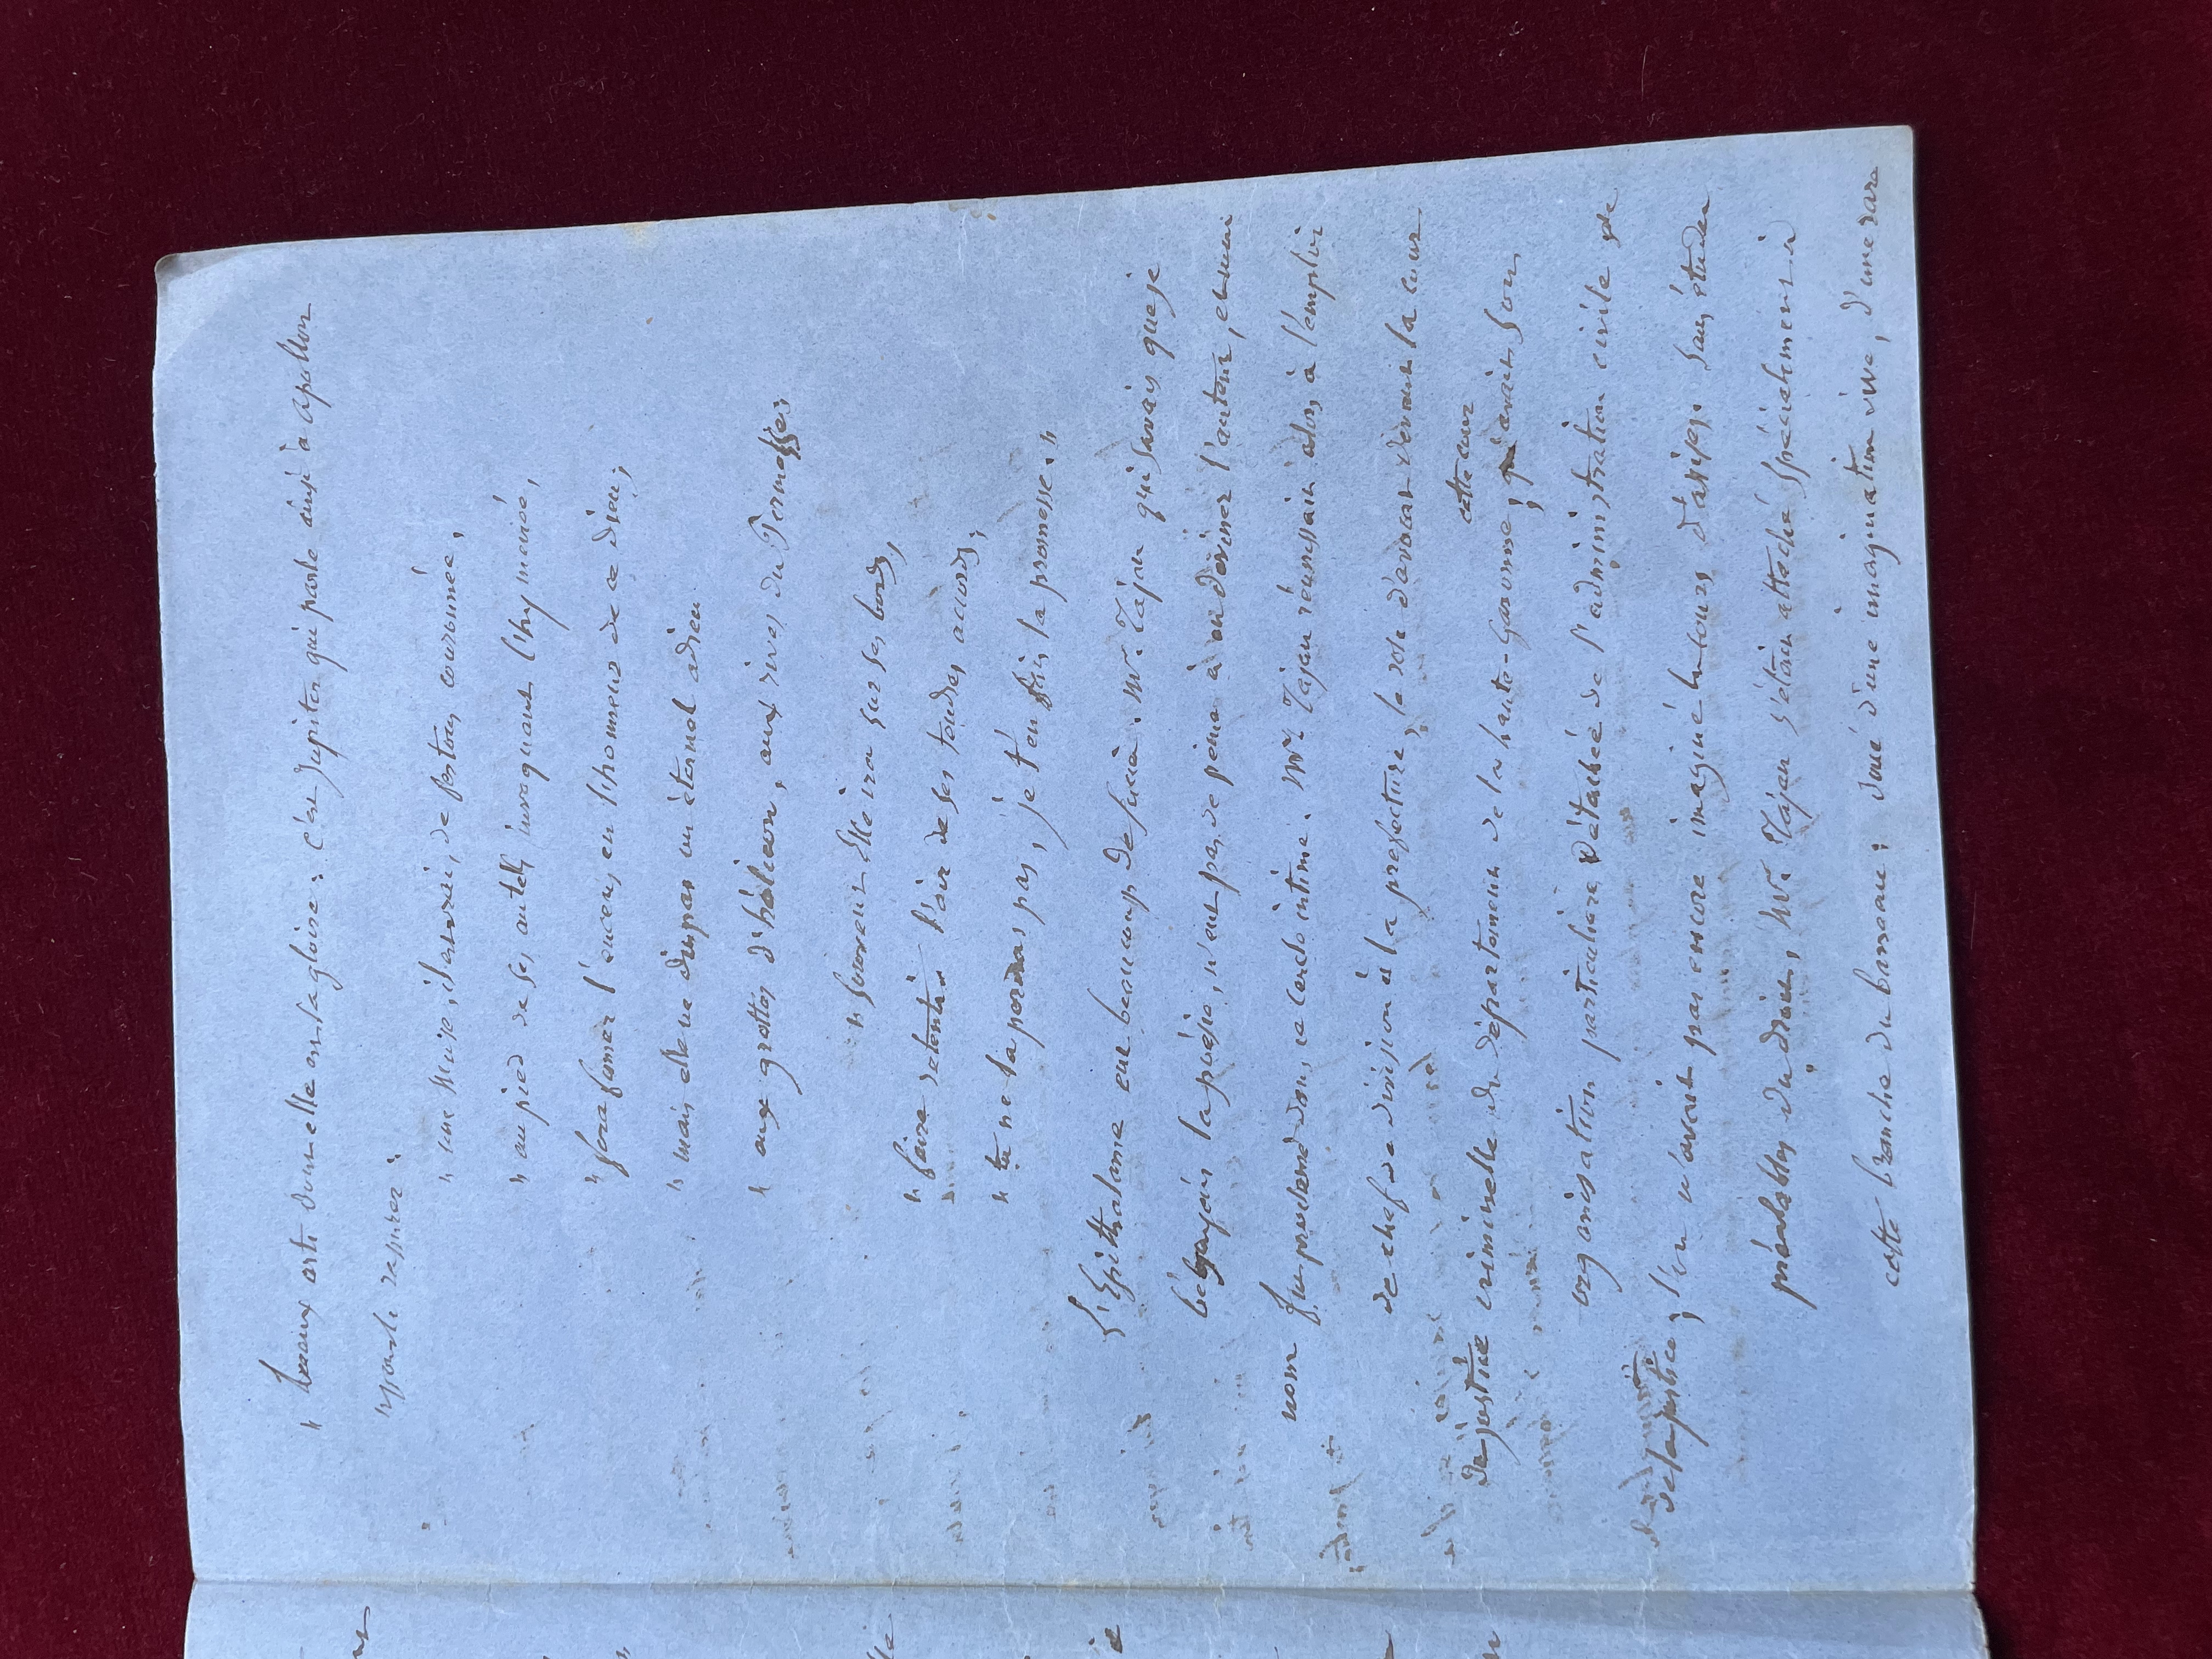 " beaux arts donne elle en ta gloire : c'est Jupiter qui parle ainsi à Apollon
"
" une Muse, il est vrai, de festons couronnée,
" au pied de ses autels invoquant l'hyménée,
" fera fumer l'encens en l'honneur de ce dieu ;
" mais elle ne dit pas un éternel adieu
" aux grottes d'hélicon, aux rives du Permesse ;
" Souvent Elle ira sur ses bords,
" faire retentir l'air de ses tendres accords ;
" tu ne la perdras pas, je t'en fais la promesse. "
L'Epithalame eut beaucoup de succès. Mr. Tajan qui savais que je
bégayais la poésie, n'eut pas de peine à en deviner l'auteur, et mon
nom fut proclamé dans ce cercle intime. Mr. Tajan réunissait alors à l'emploi
de chef de division à la préfecture, le rôle d'avocat devant la cour
de justice criminelle du département de la haute-Garonne ; cette cour avait son
organisation particulière détachée de l'administration civile de
de la justice ; l'on n'avait pas encore imaginé les cours d'assises. Sans études
préalables du droit, Mr. Tajan s'était attaché spécialement à
cette branche du barreau ; doué d'une imagination vive, d'une rare